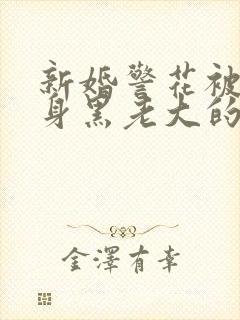 新婚警花被
身黑老大的
金澤有幸